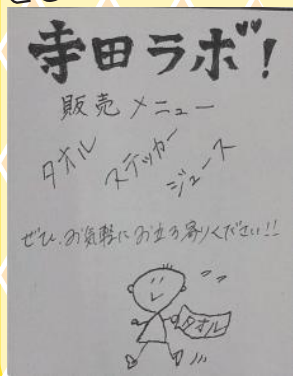 寺田ラボ!
販売メニュー
タオル
ステッカー
ジュース
ぜひ、お気軽にお立ち寄りください!!
タオル